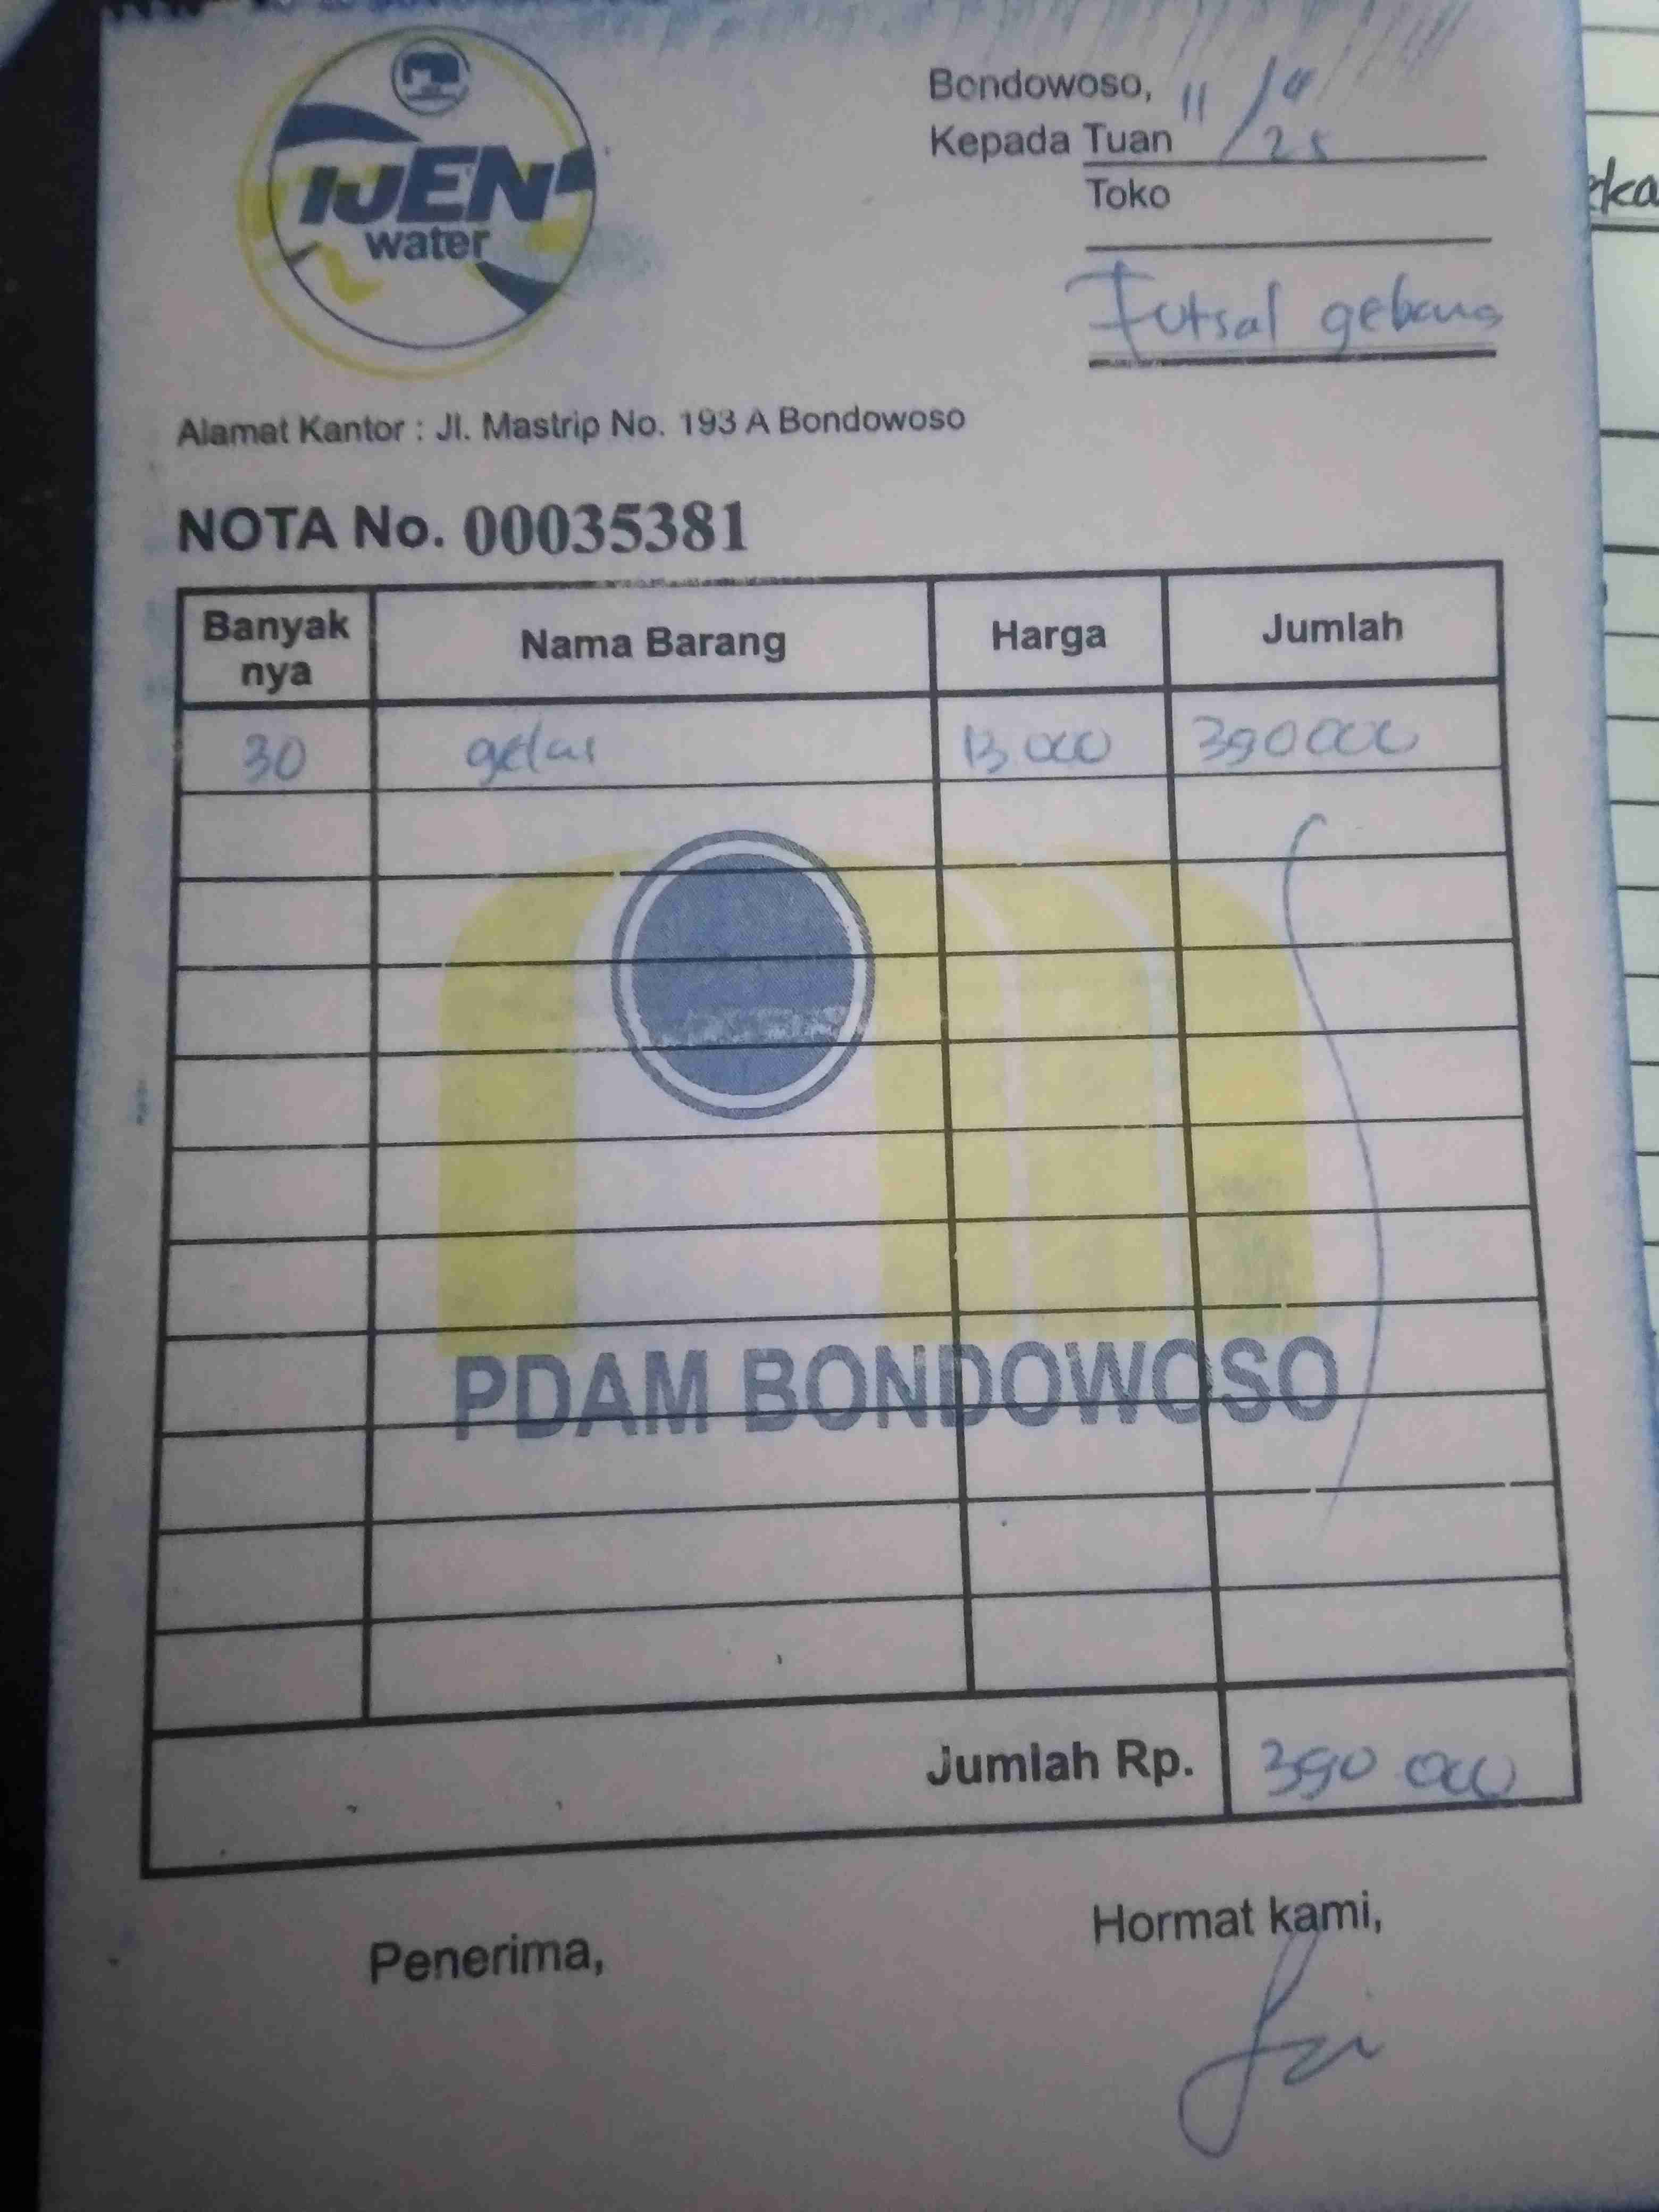 IJEN
water
Bondowoso, 11/ /25
Kepada Tuan
Toko
Futsal gebang
Alamat Kantor : Jl. Mastrip No. 193 A Bondowoso
NOTA No. 00035381
Banyak nya Nama Barang Harga Jumlah
30 gelas 13.000 390 000
PDAM BONDOWOSO
Jumlah Rp. 390 000
Penerima,
Hormat kami,